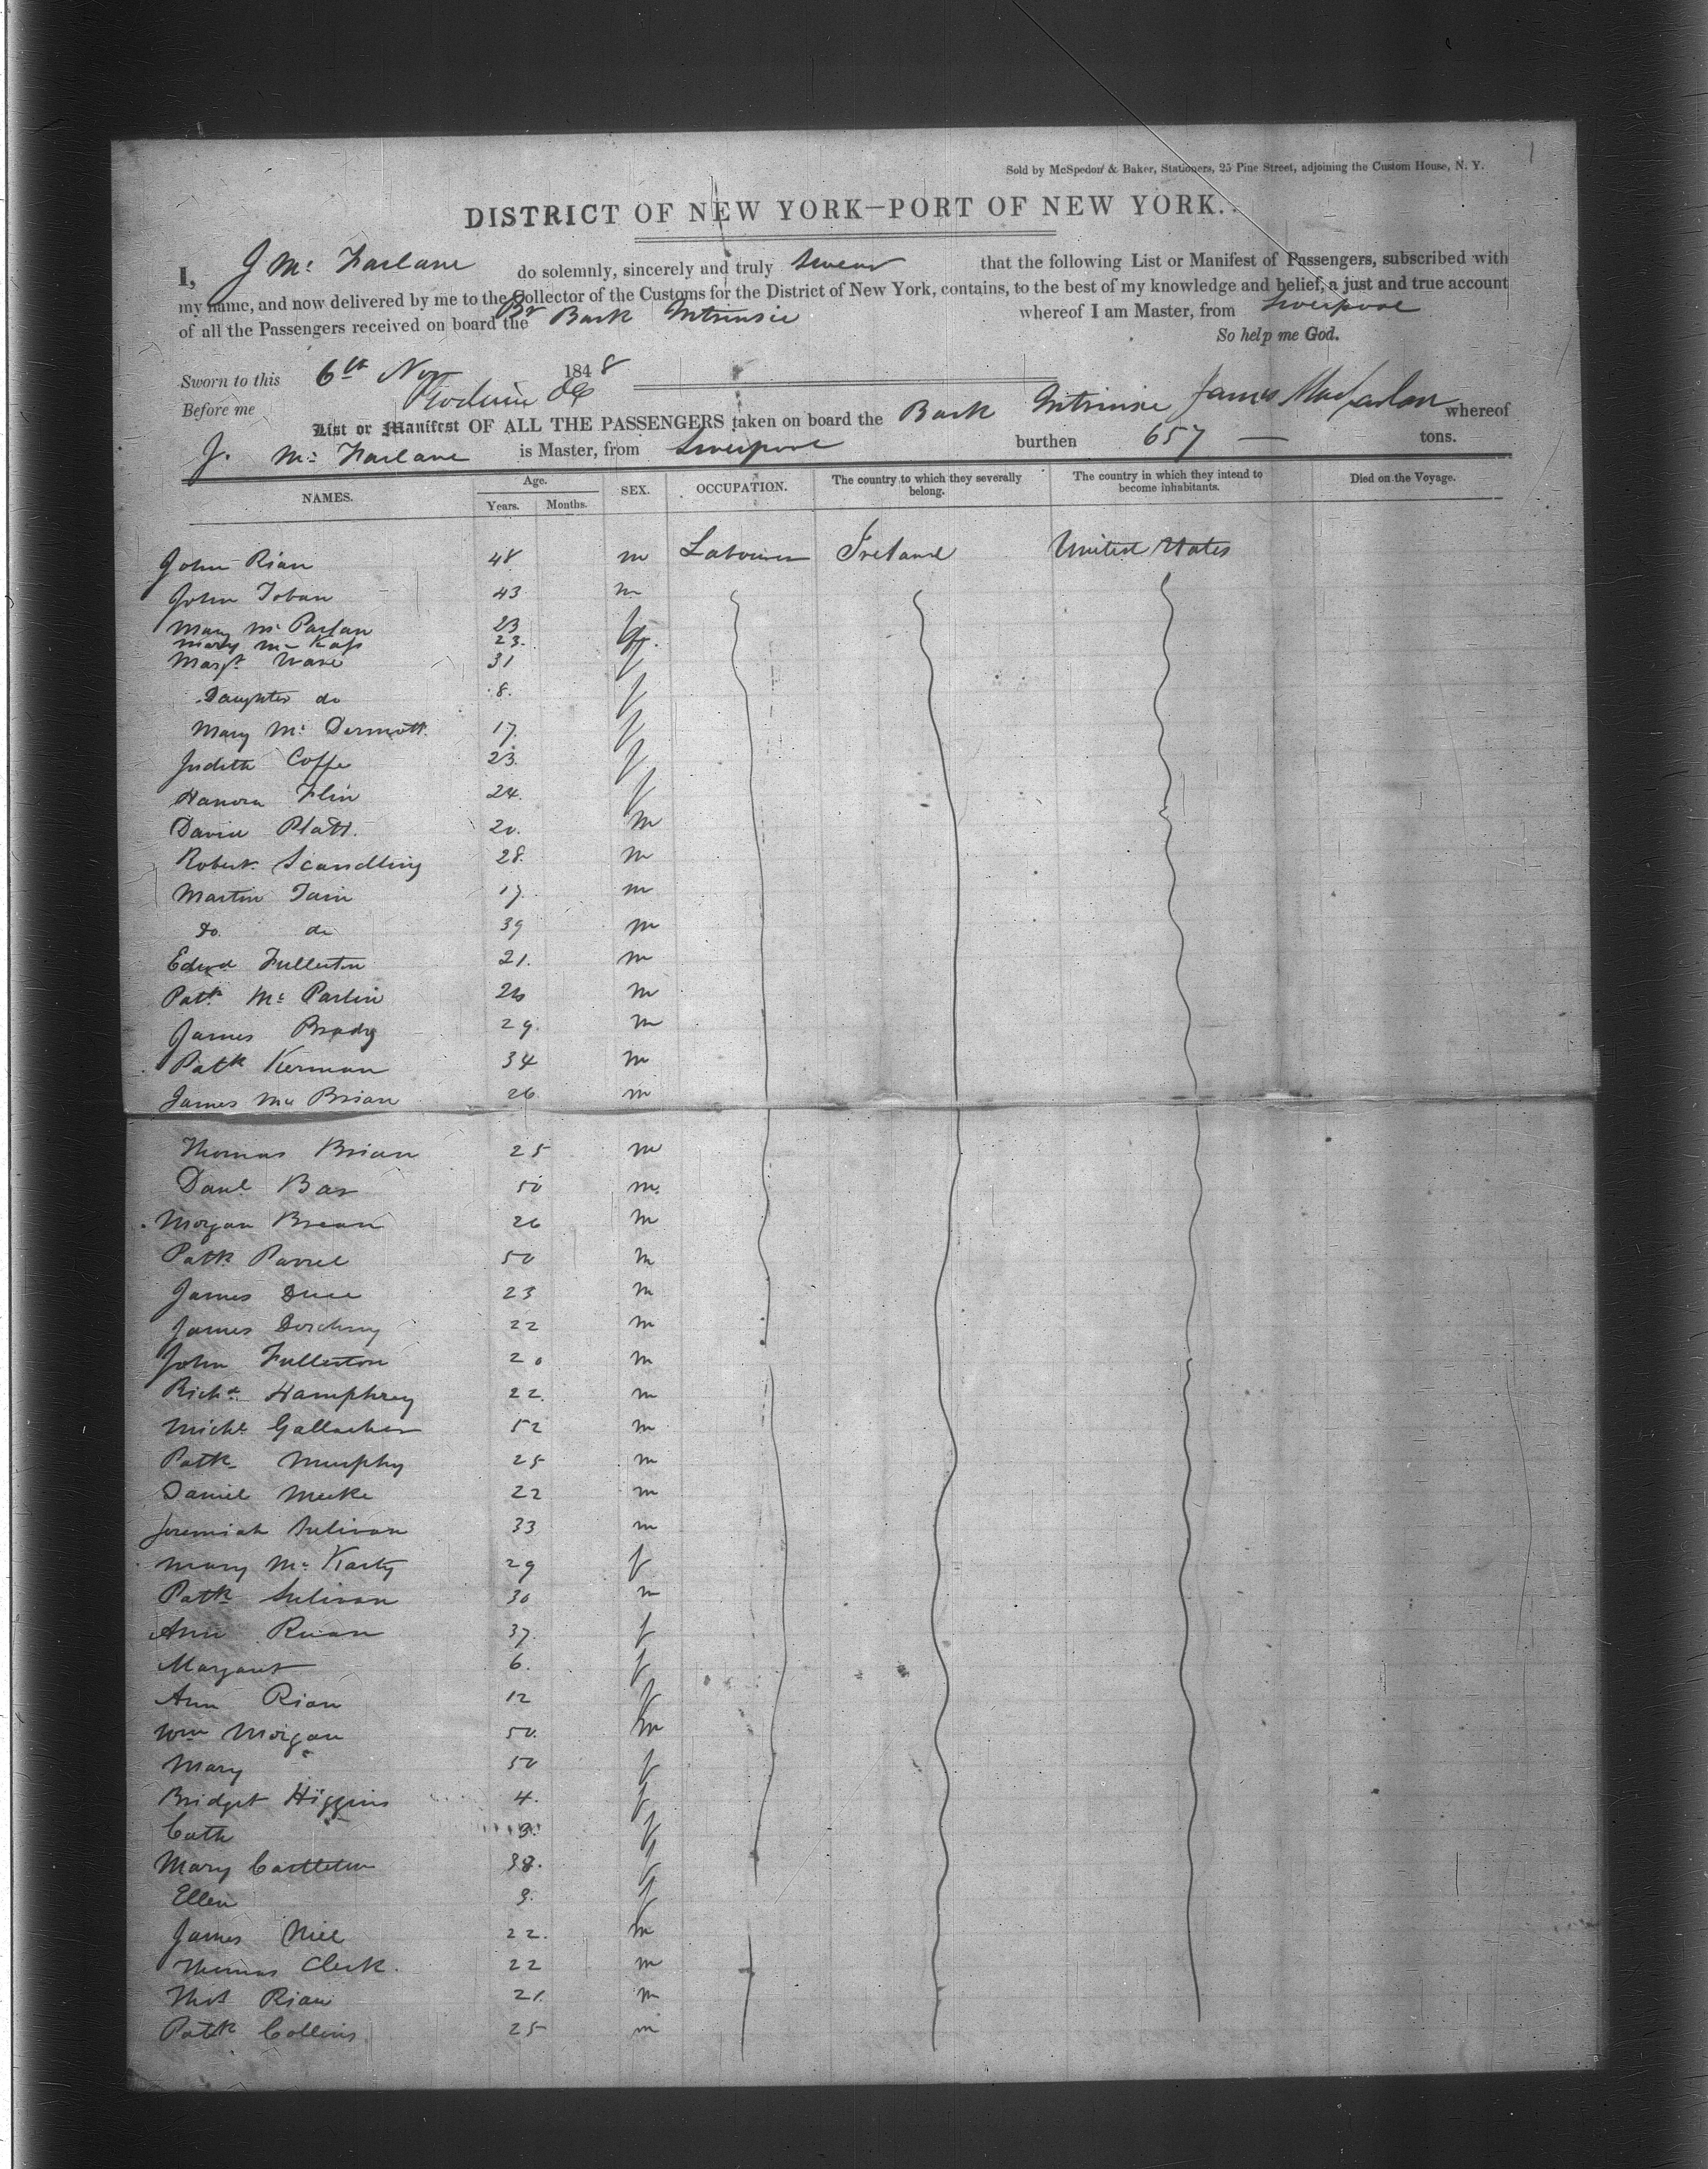 Sold by McSpedon & Baker, Stationers, 25 Pine Street, adjoining the Custom House, N. Y.
1
DISTRICT OF NEW YORK—PORT OF NEW YORK.
I, J Mc Farlane do solemnly, sincerely and truly swear that the following List or Manifest of Passengers, subscribed with
my name, and now delivered by me to the Collector of the Customs for the District of New York, contains, to the best of my knowledge and belief, a just and true account
of all the Passengers received on board the Br Bark Intrinsic whereof I am Master, from Liverpool
So help me God.
Sworn to this 6th Nov 1848
Before me
James Macfarlan
List or Manifest OF ALL THE PASSENGERS taken on board the Bark Intrinsic whereof
J. Mc Farlane is Master, from Liverpool burthen 657 — tons.
NAMES. Age. Years. Months. SEX. OCCUPATION. The country to which they severally belong. The country in which they intend to become inhabitants. Died on the Voyage.
John Rian 48 m Labourer Ireland United States
John Toban 43 m
Mary Mc Parlan 23 f
Mary Mc 23. f.
Margt Ware 31 f
Daughter do 8. f
Mary Mc Dermott 17. f
Judith Coffe 23. f
Hanora Flin 24. f
David Platt. 20. m
Robert Scandling 28. m
Martin 17. m
Do. do 39 m
Edwd Fullerton 21. m
Patk Mc Parlin 26 m
James Brady 29. m
Patk Kerman 34 m
James Mc Brian 26 m
Thomas Brian 25 m
Danl Bar 50 m.
Morgan Brean 26 m
Patk Parrel 50 m
James 23 m
James 22 m
John Fullerton 20 m
Richd Hamphrey 22. m
Michl Gallacher 52 m
Patk Murphy 25 m
Daniel Meeke 22 m
Jeremiah Sulivan 33 m
Mary Mc Karty 29 f
Patk Sulivan 30 m
Ann Rian 37. f
Margaret 6. f
Ann Rian 12 f
Wm Morgan 50. m
Mary 50 f
Bridget Higgins 4. f
Cath 3. f
Mary Castleton 38. f
Ellen 3. f
James Niel 22. m
Thomas Clerk. 22 m
Thos Rian 21. m
Patk Collins. 25 m